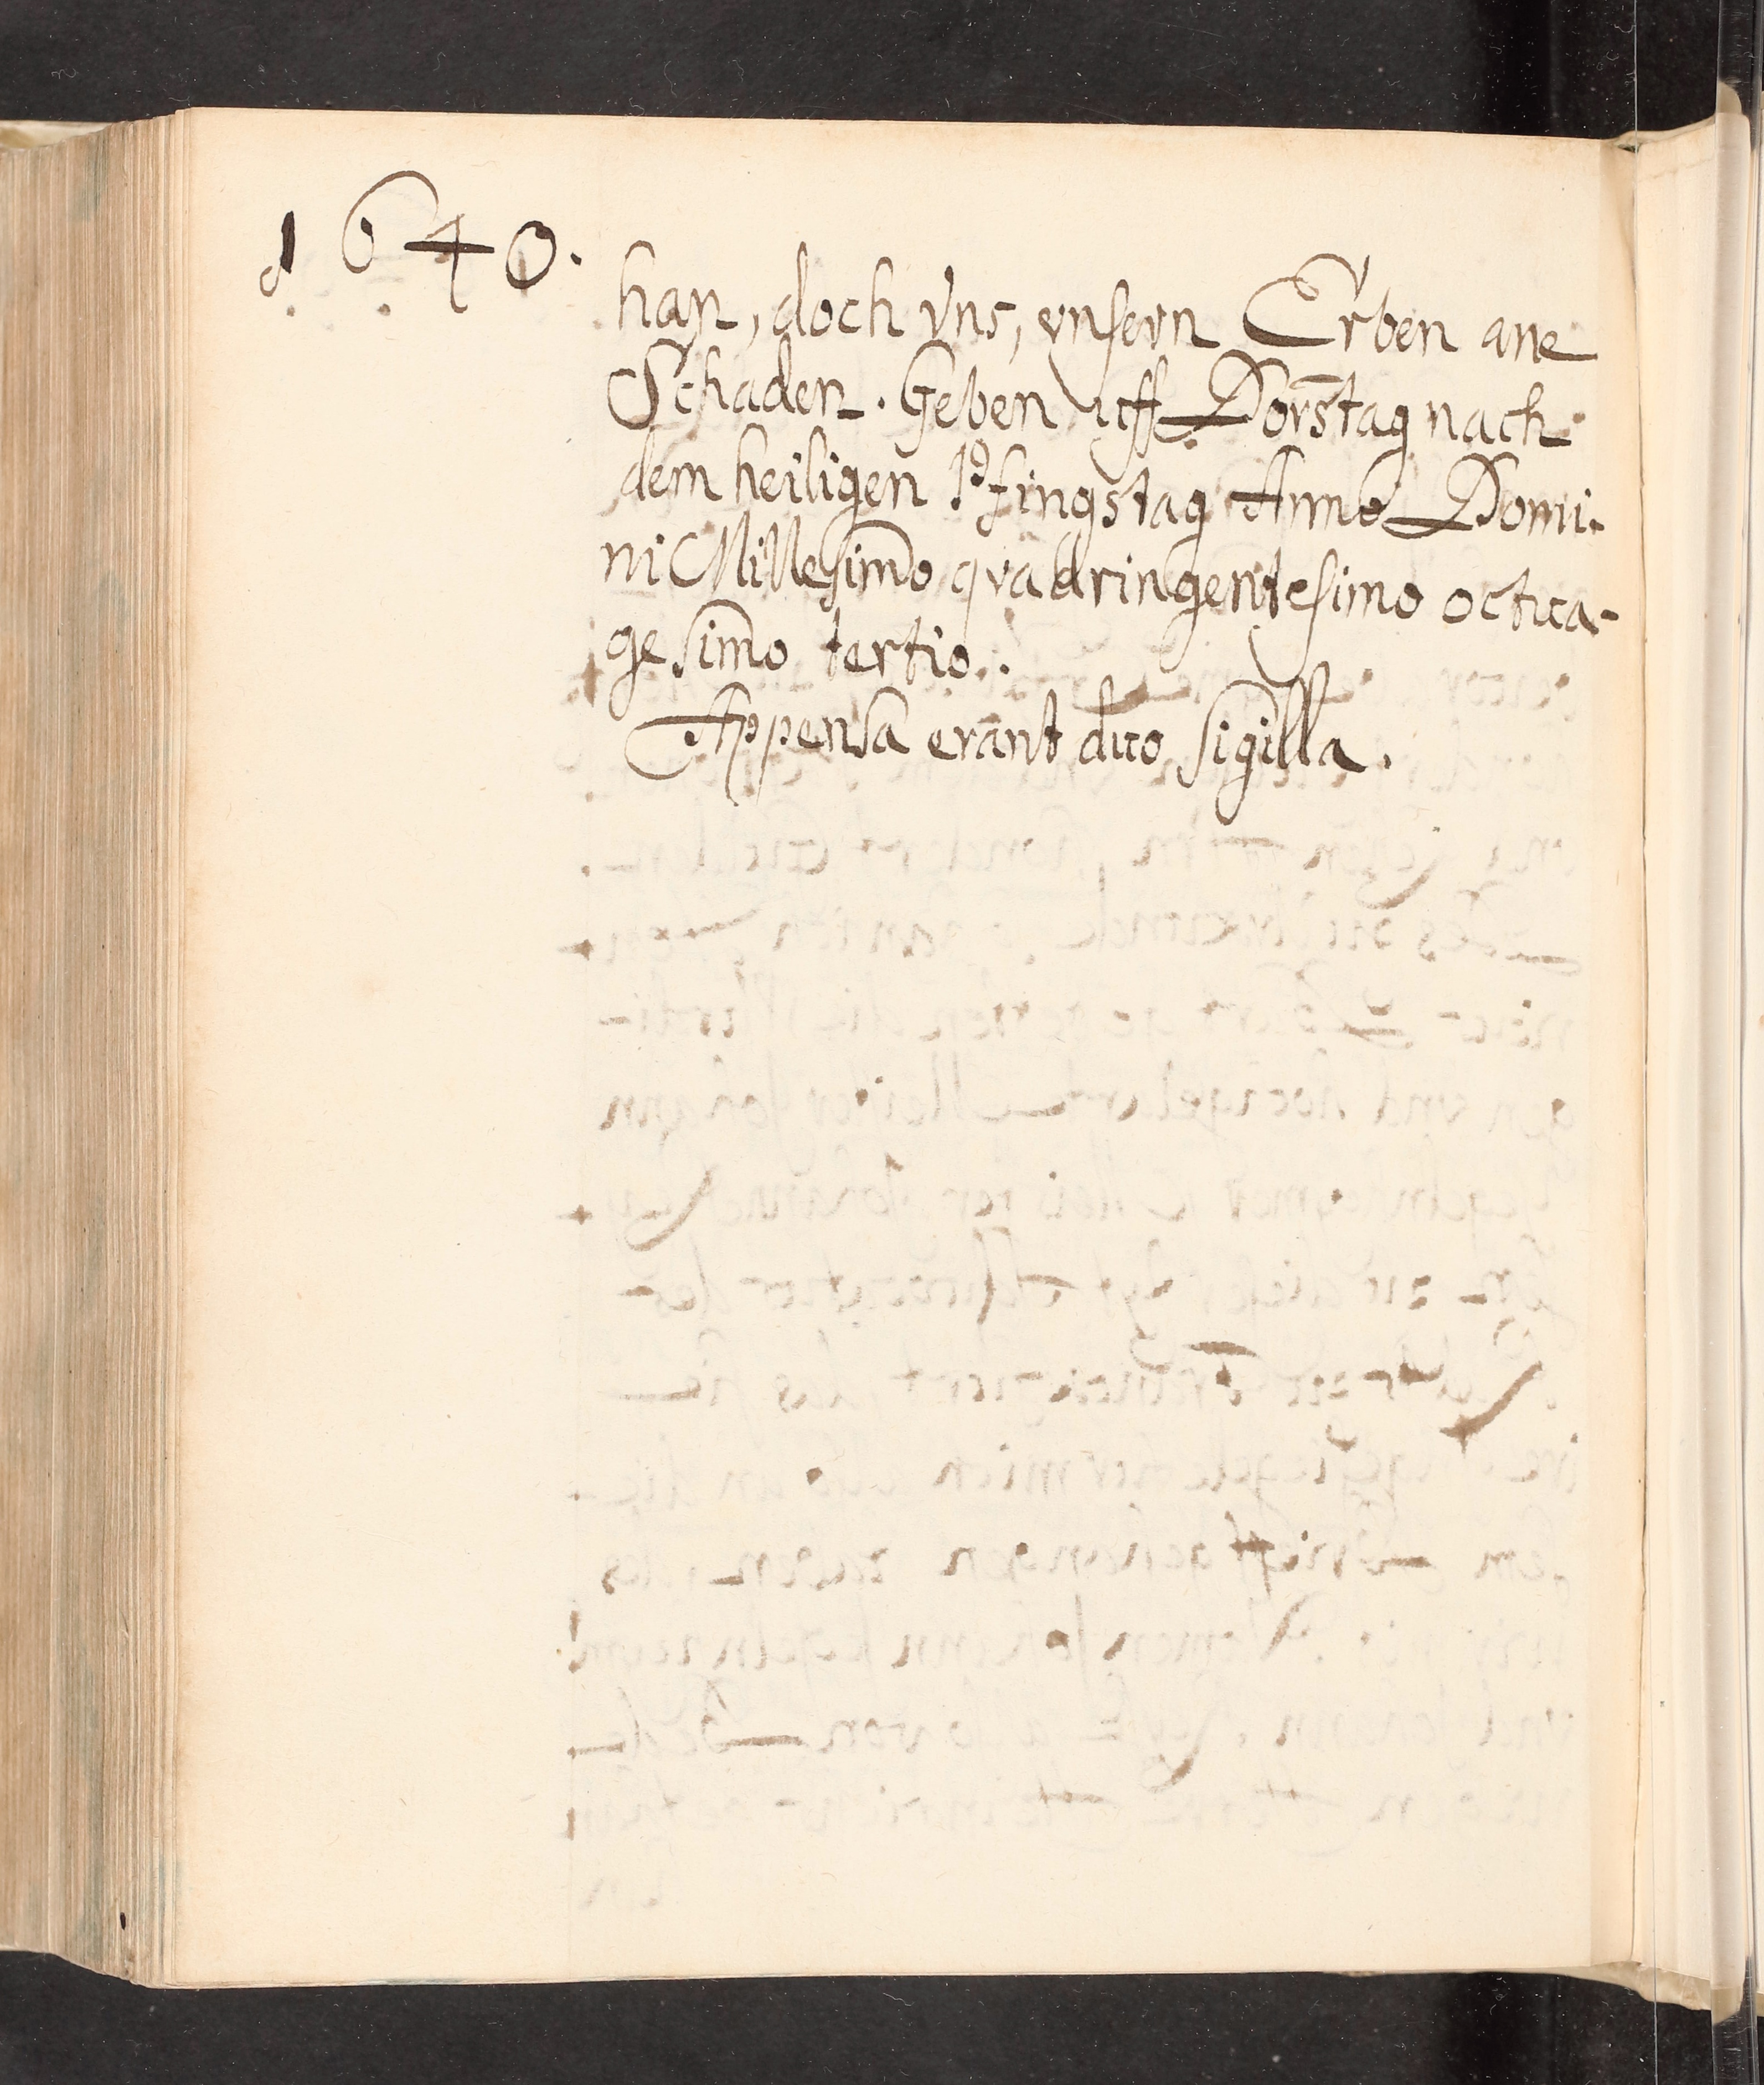 1640.
han, doch vns, vnsern Erben ane
Schaden. Geben uff Dorstag nach
dem heiligen Pfingstag Anno Domi-
ni Millesimo qvadringentesimo octua-
gesimo tertio.
Appensa erant duo sigilla.